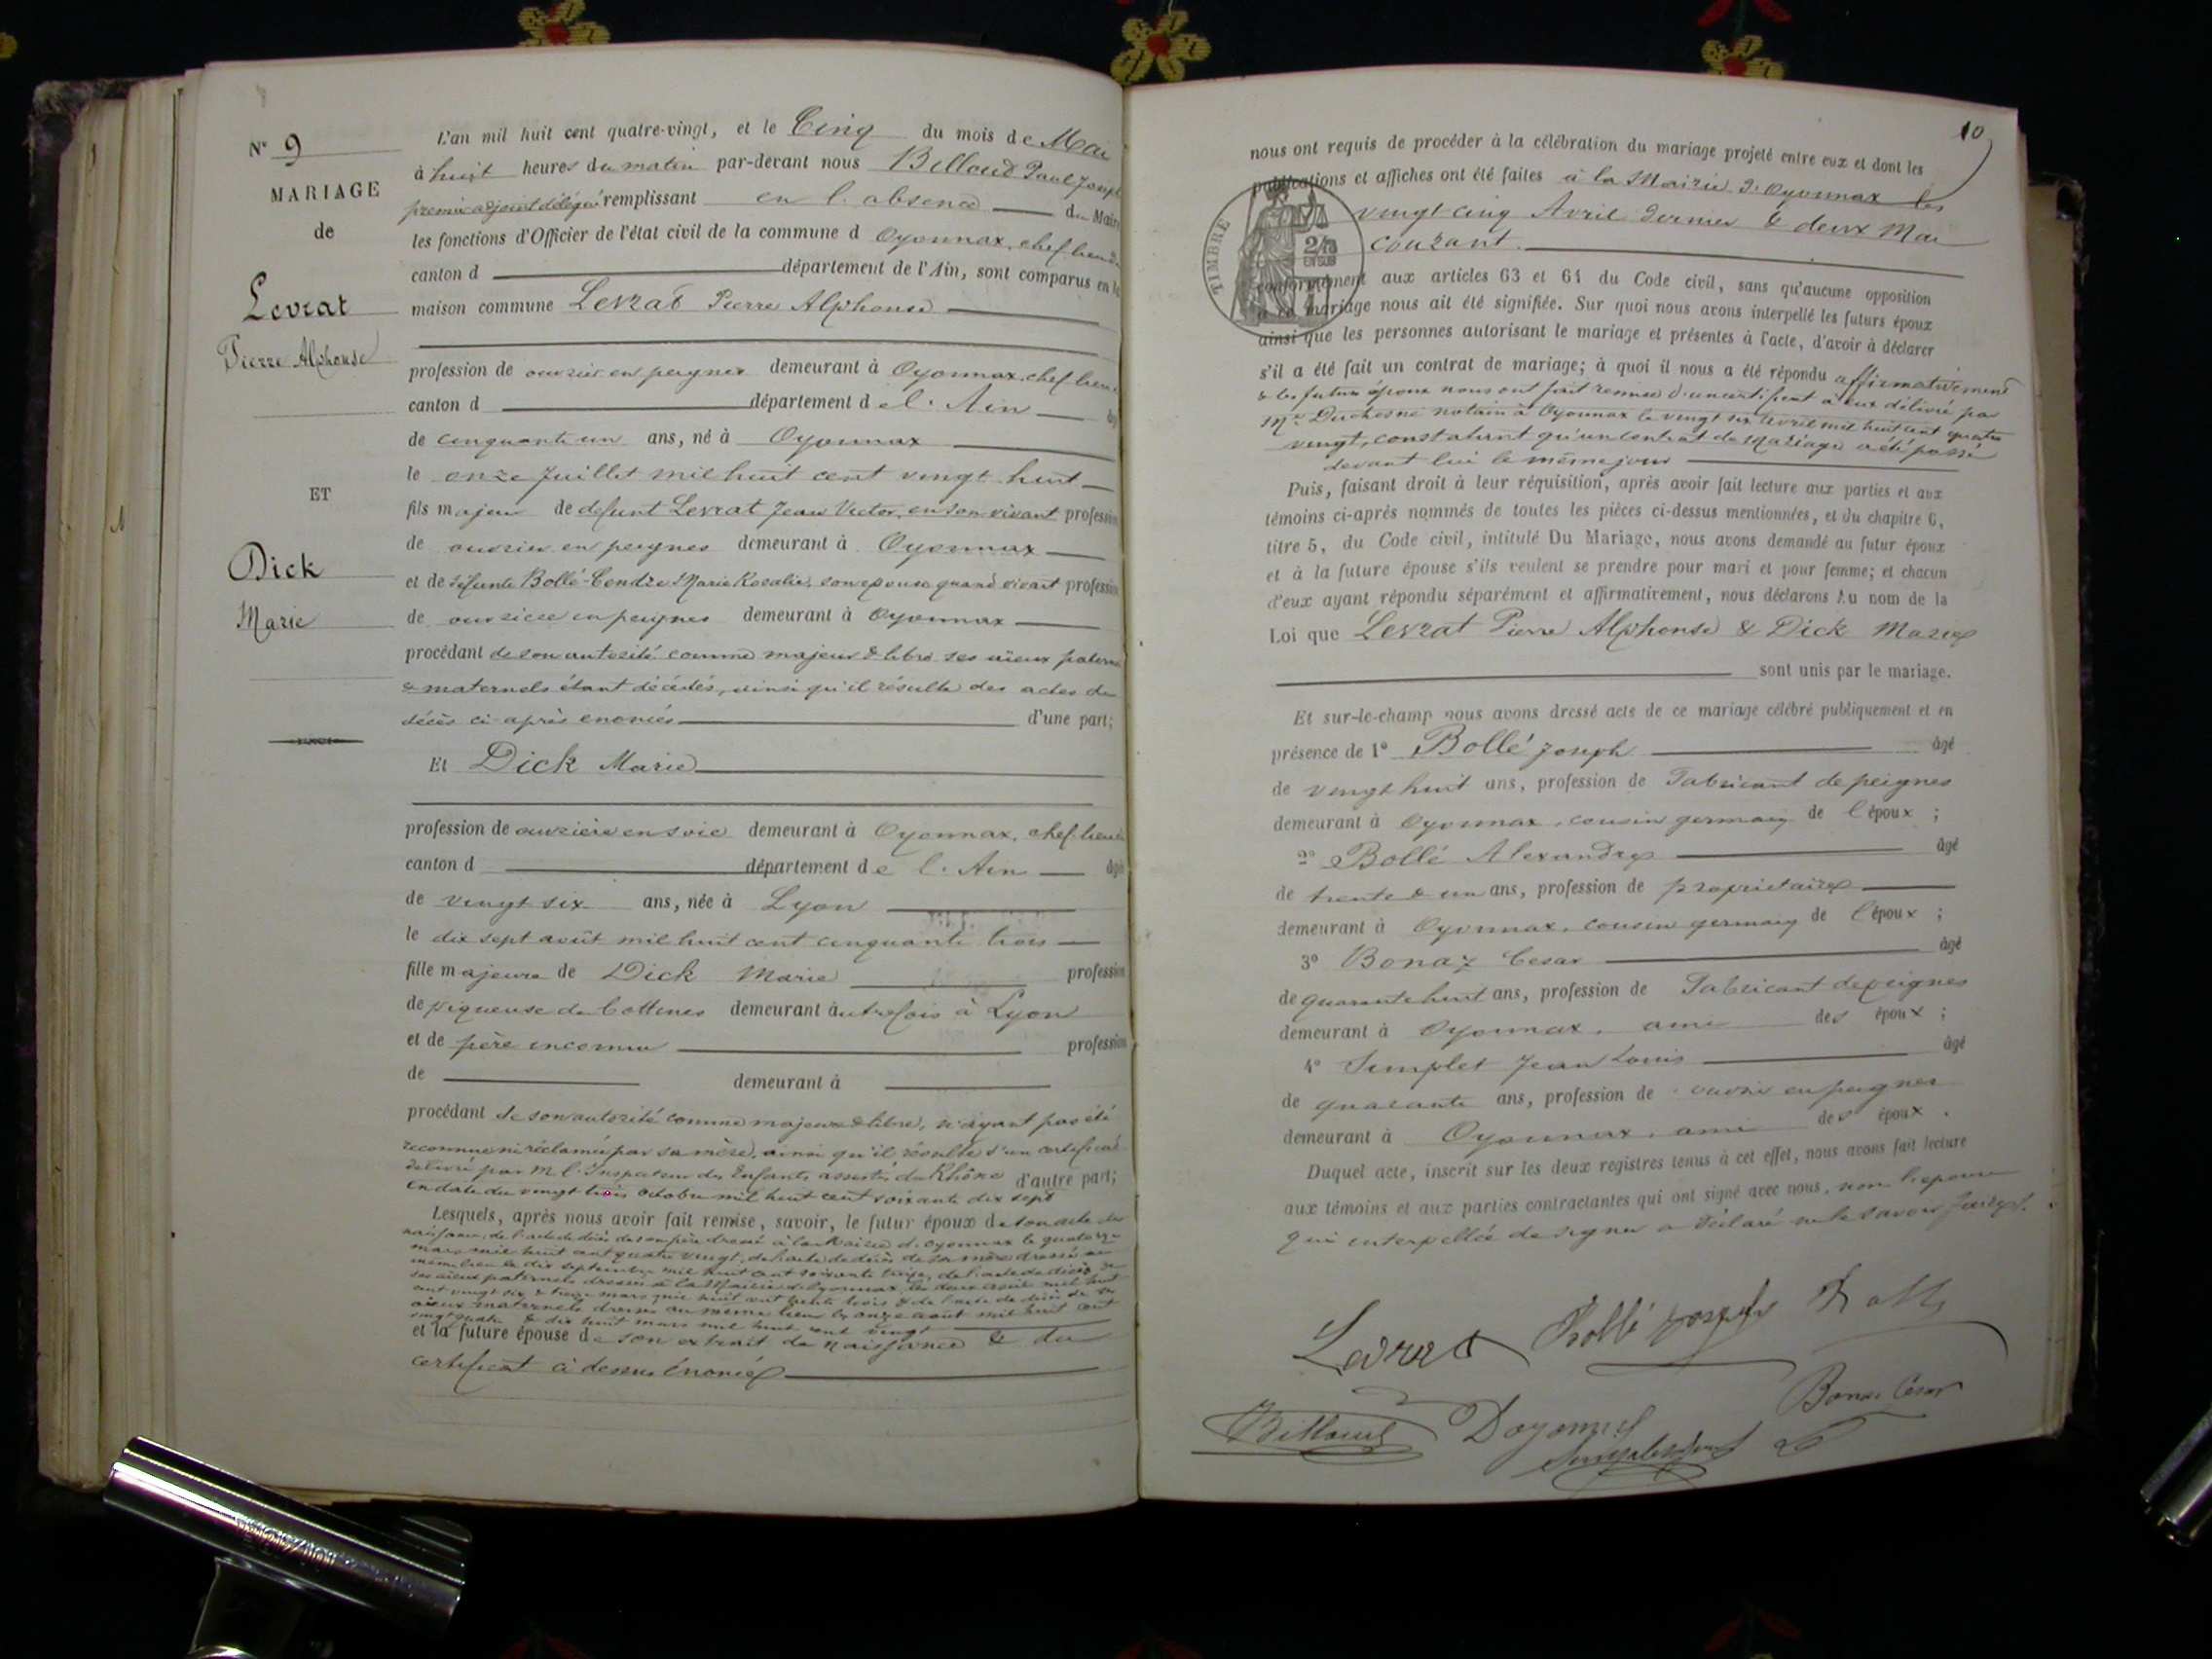 N° 9
MARIAGE
de
Levrat
Pierre Alphonse
ET
Dick
Marie
L'an mil huit cent quatre-vingt, et le Cinq du mois de Mai
à huit heures du matin par-devant nous Billoud Paul Joseph
premier adjoint délégué remplissant en l'absence du Maire
les fonctions d'Officier de l'état civil de la commune d Oyonnax, chef lieu de
canton d département de l'Ain, sont comparus en la
maison commune Levrat Pierre Alphonse
profession de ouvrier en peignes demeurant à Oyonnax, chef lieu
canton d département de l'Ain âgé
de cinquante un ans, né à Oyonnax
le onze Juillet mil huit cent vingt huit
fils majeur de defunt Levrat Jean Victor, en son vivant profession
de ouvrier en peignes demeurant à Oyonnax
et de défunte Bollé-Cendre Marie Rosalie, son epouse quand vivait profession
de ouvriere en peignes demeurant à Oyonnax
procédant de son autorité comme majeur & libre ses aïeux paternels
& maternels étant décédés, ainsi qu'il résulte des actes de
décès ci-après énoncés d'une part;
Et Dick Marie
profession de ouvrière en soie demeurant à Oyonnax, chef lieu de
canton d département de l'Ain âgée
de vingt six ans, née à Lyon
le dix sept août mil huit cent cinquante trois
fille majeure de Dick Marie profession
de piqueuse de bottines demeurant autrefois à Lyon
et de père inconnu profession
de demeurant à
procédant de son autorité comme majeure & libre, n'ayant pas été
reconnue ni réclamée par sa mère, ainsi qu'il résulte d'un certificat
délivré par M. l'Inspecteur des Enfants assistés du Rhône d'autre part;
en date du vingt trois octobre mil huit cent soixante dix sept
Lesquels, après nous avoir fait remise, savoir, le futur époux de son acte de
naissance, de l'acte de décès de son père dressé à la Mairie d'Oyonnax le quatorze
mars mil huit cent quatre vingt, de l'acte de décès de sa mère dressé au
même lieu le dix septembre mil huit cent soixante treize, de l'acte de décès de
ses aïeux paternels dressés à la Mairie d'Oyonnax, les deux avril mil huit
cent vingt six & treize mars mil huit cent trente trois & de l'acte de décès de ses
aïeux maternels dressés au même lieu les onze août mil huit cent
vingt quatre & dix huit mars mil huit cent vingt
et la future épouse de son extrait de naissance & du
certificat ci dessus énoncé
10
nous ont requis de procéder à la célébration du mariage projeté entre eux et dont les
publications et affiches ont été faites à la Mairie d'Oyonnax les
vingt cinq Avril dernier & deux Mai
courant.
TIMBRE
conformément aux articles 63 et 64 du Code civil, sans qu'aucune opposition
à ce mariage nous ait été signifiée. Sur quoi nous avons interpellé les futurs époux
ainsi que les personnes autorisant le mariage et présentes à l'acte, d'avoir à déclarer
s'il a été fait un contrat de mariage; à quoi il nous a été répondu affirmativement
& les futurs époux nous ont fait remise d'un certificat à eux délivré par
Me Duchesne notaire à Oyonnax le vingt six avril mil huit cent quatre
vingt, constatant qu'un contrat de mariage a été passé
devant lui le même jour
Puis, faisant droit à leur réquisition, après avoir fait lecture aux parties et aux
témoins ci-après nommés de toutes les pièces ci-dessus mentionnées, et du chapitre 6,
titre 5, du Code civil, intitulé Du Mariage, nous avons demandé au futur époux
et à la future épouse s'ils veulent se prendre pour mari et pour femme; et chacun
d'eux ayant répondu séparément et affirmativement, nous déclarons au nom de la
Loi que Levrat Pierre Alphonse & Dick Marie
sont unis par le mariage.
Et sur-le-champ nous avons dressé acte de ce mariage célébré publiquement et en
présence de 1° Bollé Joseph âgé
de vingt huit ans, profession de Fabricant de peignes
demeurant à Oyonnax, cousin germain de l'époux ;
2° Bollé Alexandre âgé
de trente & un ans, profession de propriétaire
demeurant à Oyonnax, cousin germain de l'époux ;
3° Bonaz Cesar âgé
de quarante huit ans, profession de Fabricant de peignes
demeurant à Oyonnax, ami des époux ;
4° Simplet Jean Louis âgé
de quarante ans, profession de ouvrier en peignes
demeurant à Oyonnax, ami des époux.
Duquel acte, inscrit sur les deux registres tenus à cet effet, nous avons fait lecture
aux témoins et aux parties contractantes qui ont signé avec nous, non l'epouse
qui interpellée de signer a déclaré ne le savoir faire.
Levrat Bollé Joseph Bollé
Billoud Bonaz César